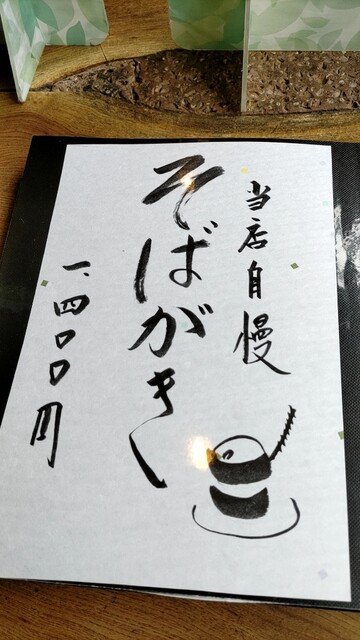 当店自慢
そばがき
一、四〇〇円